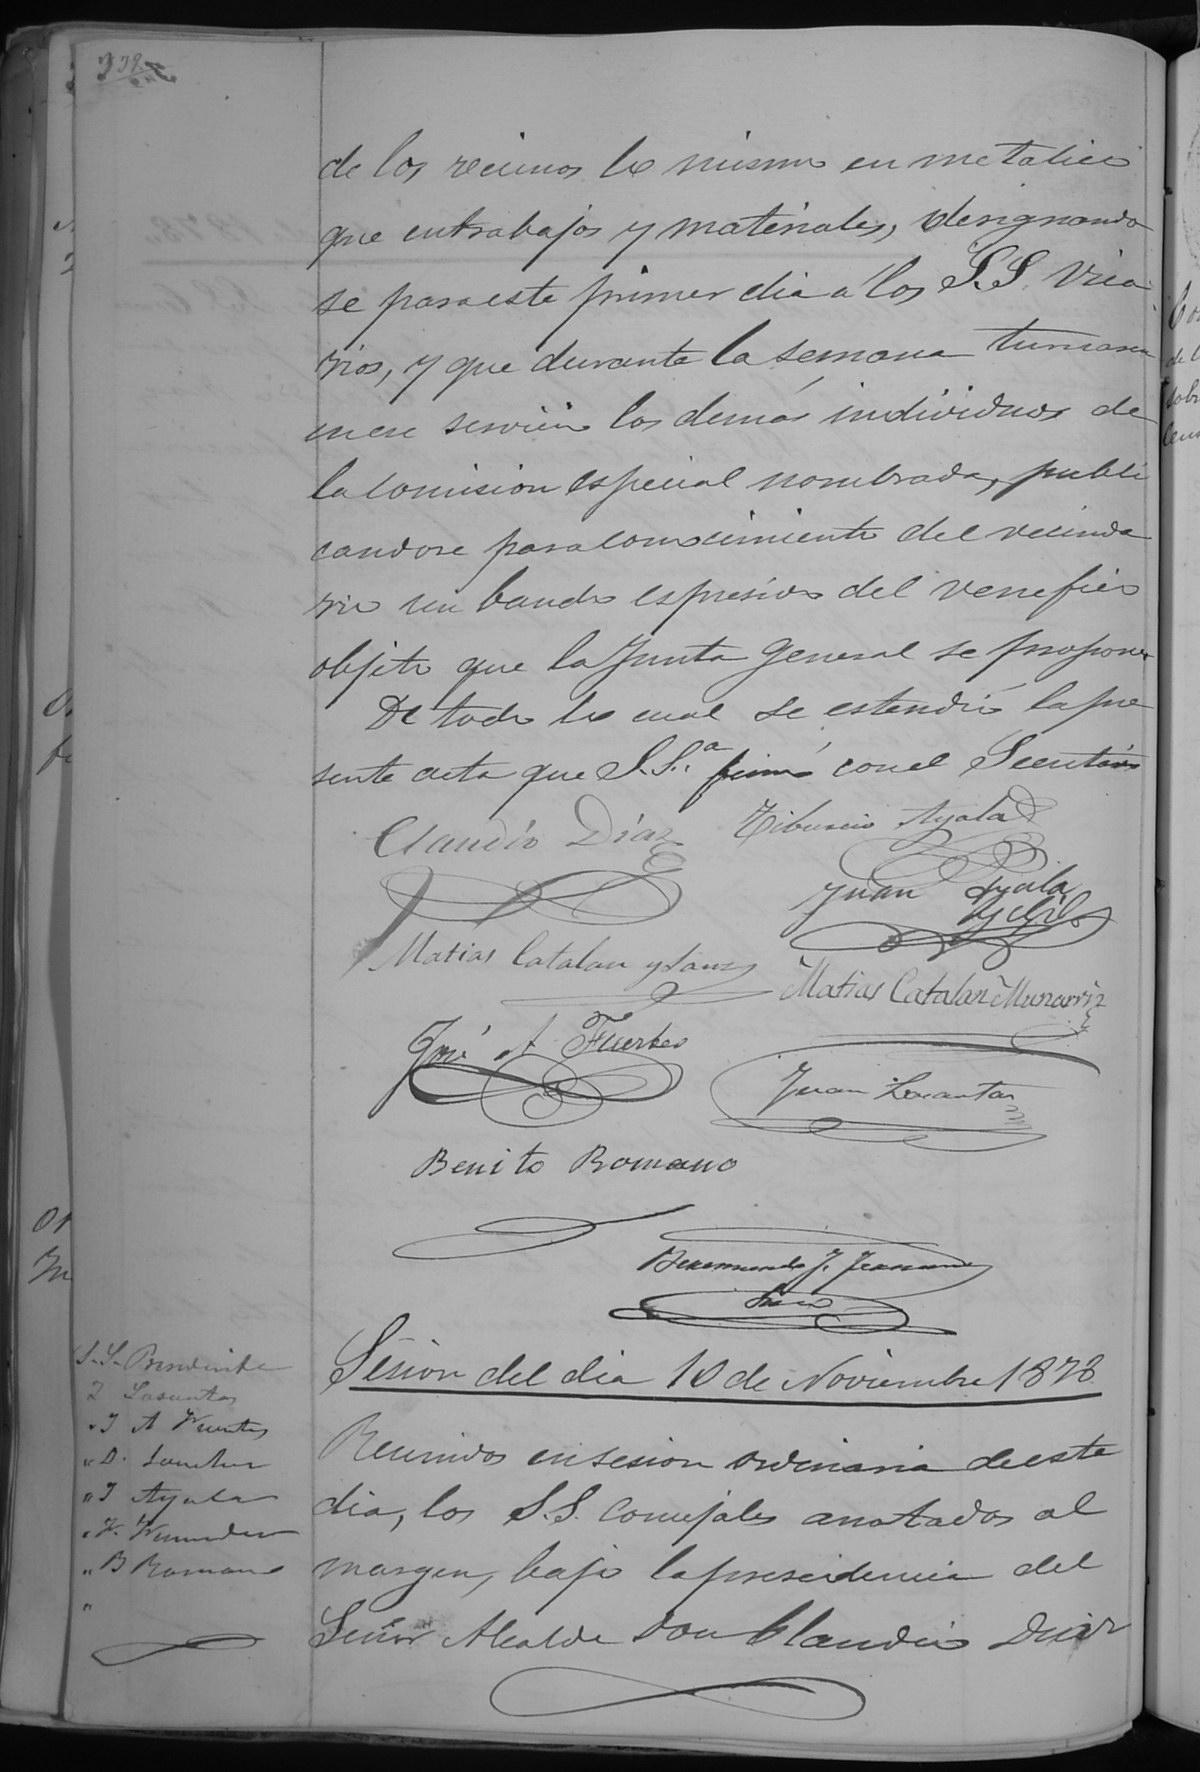 338
de los vecinos lo mismo en metalico
que entrabajos y materiales, designando
se paraeste primer dia a los S.S. Vica
rios, y que durante la semana turnaran
en ese servicio los demás individuos de
la Comision especial nombrada, publi
candose para conocimiento del vecinda
rio un bando espresivo del venefico
objeto que la Junta general se propone
De todo lo cual se estendió la pre
sente acta que S.S.ª firmó con el Secretario
Claudio Diaz
Tiburcio Ayala
Juan Ayala
y Gil
Matias Catalan y Sanz
Matias Catalan Munarriz
José A Fuertes
Juan Losantos
Benito Romano
Sesion del dia 10 de Noviembre 1878
S.S. Presidente
J Losantos
" J A Fuertes
" D. Sanchez
" J Ayala
" B Romano
"
Reunidos en sesion ordinaria de este
dia, los S.S. Concejales anotados al
margen, bajo la presidencia del
Señor Alcalde Don Claudio Diaz